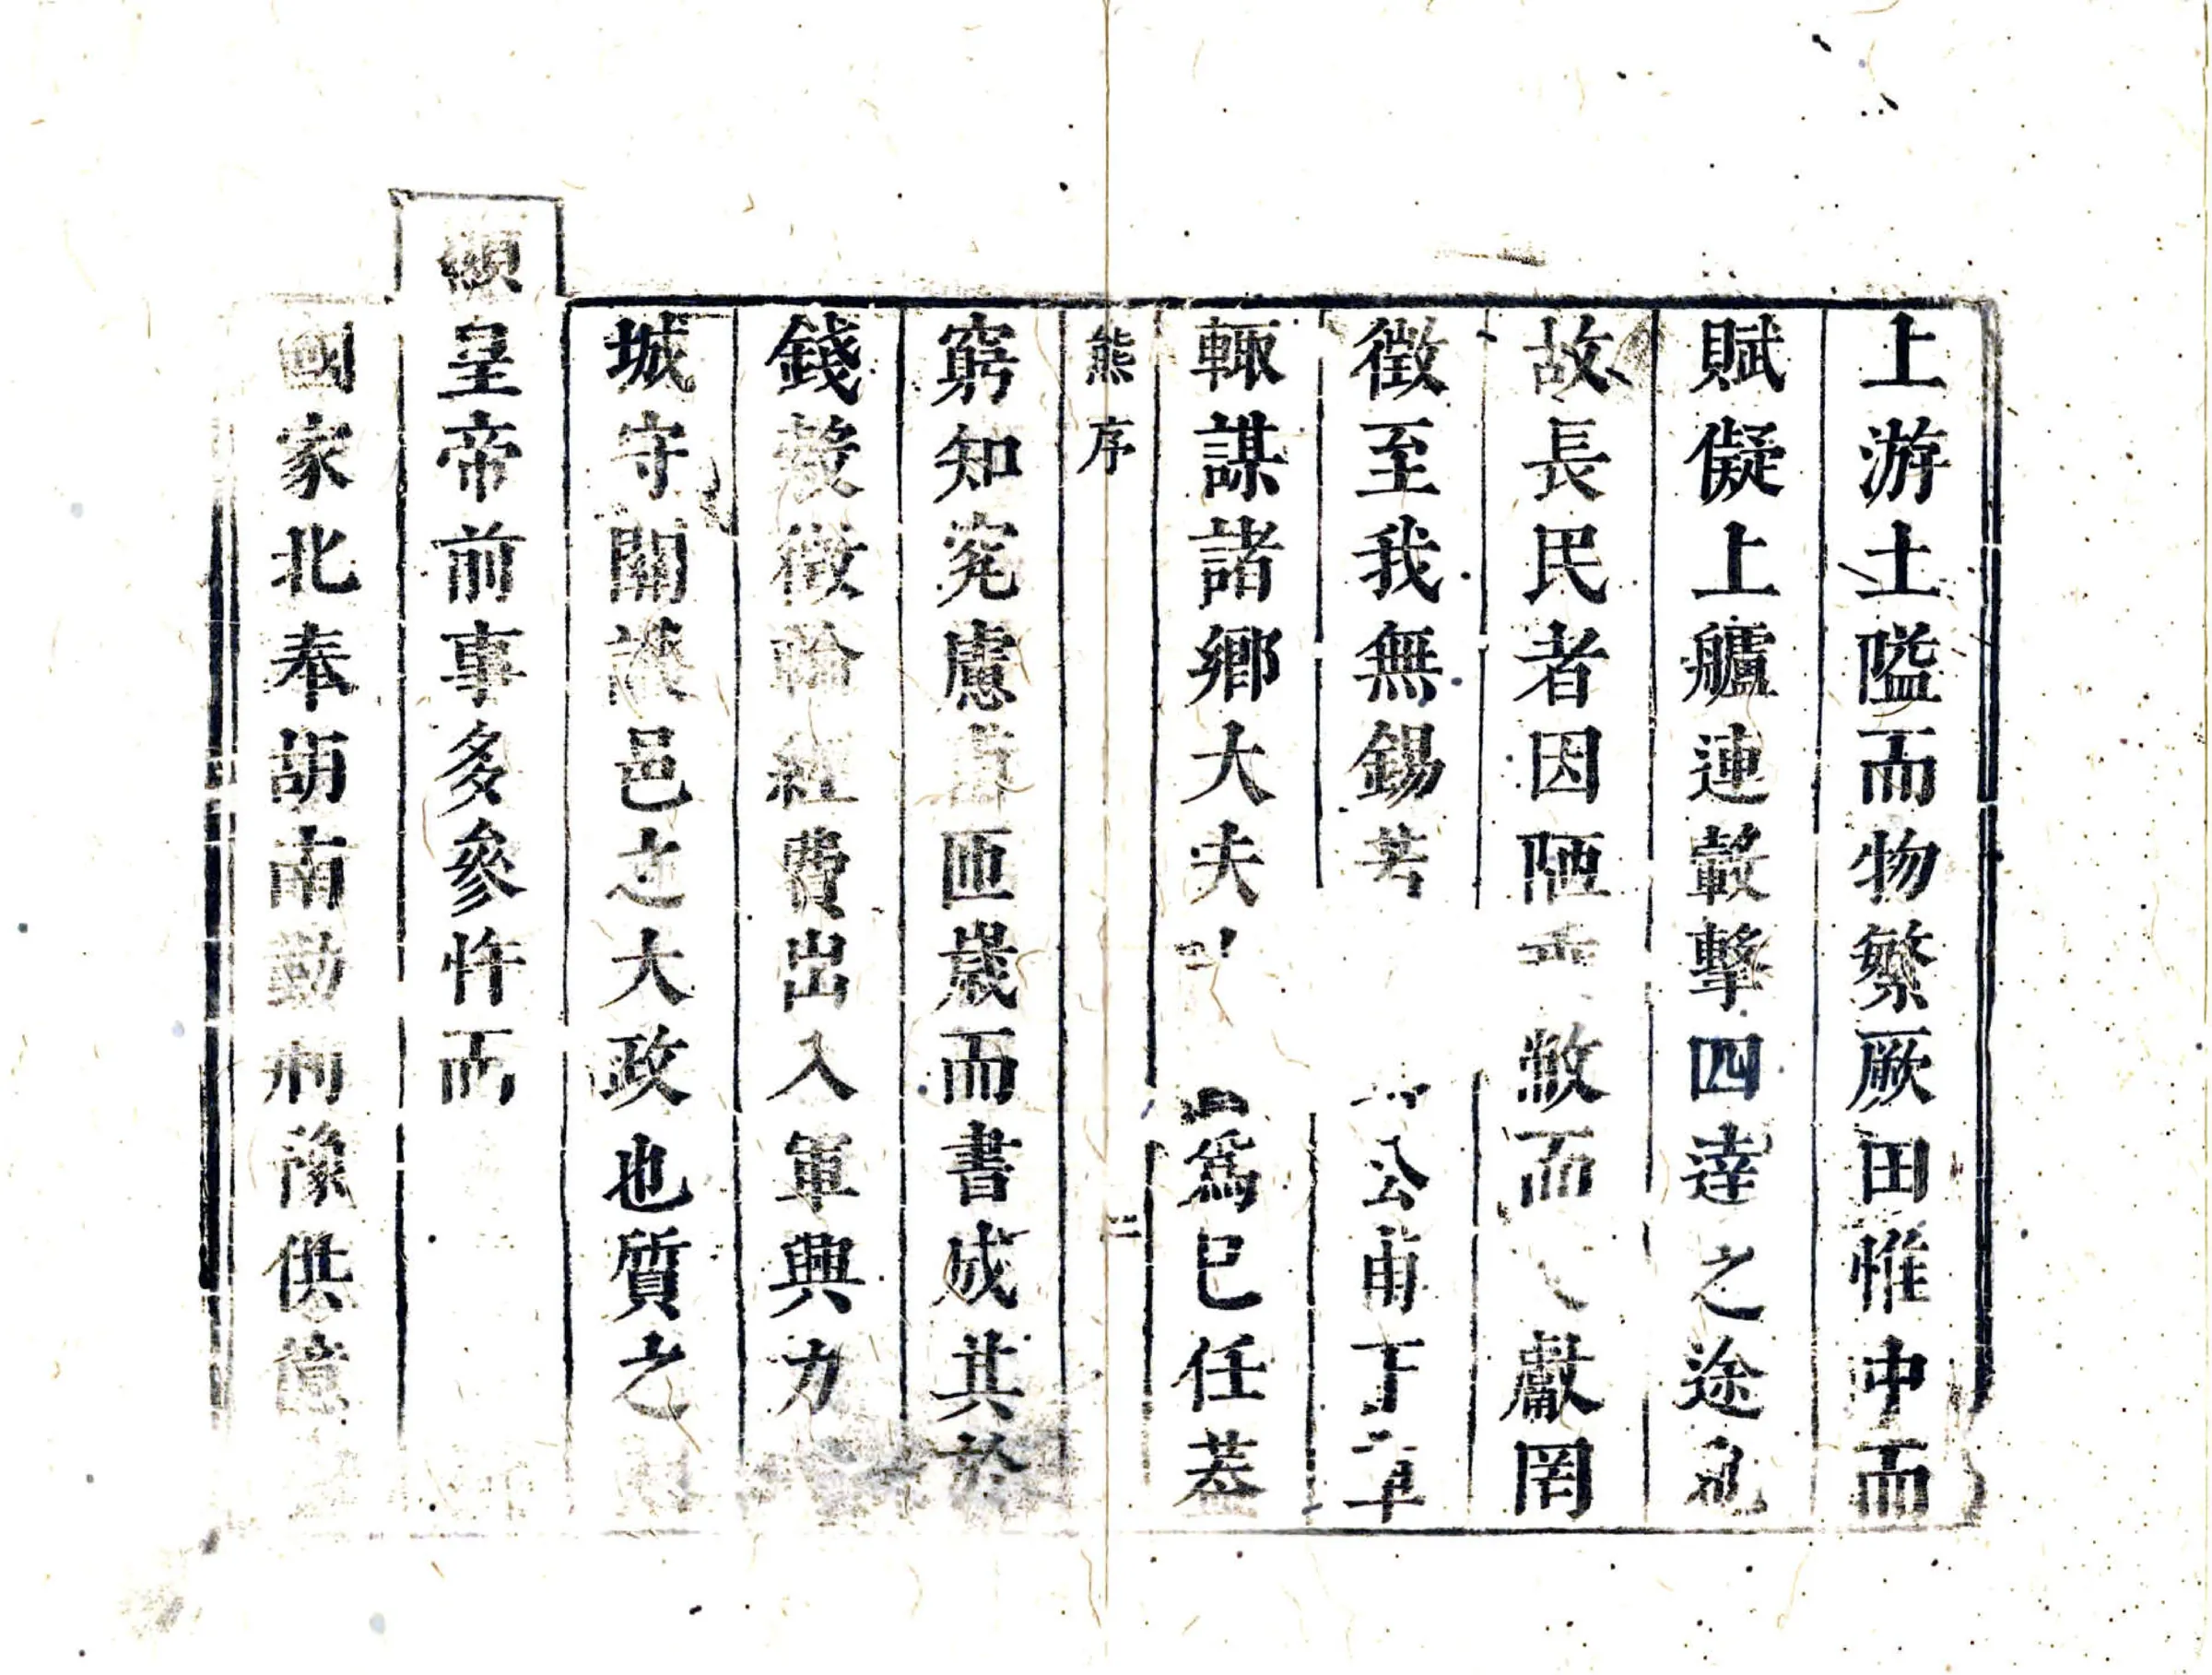 上游土隘而物繁厥田惟中而
賦儗上艫連轂擊四達之途也
故長民者因陋 敝而 獻罔
徵至我無錫 公甫下車
輙謀諸鄉大夫 為已任蓋
熊序
二
窮知究慮 匝歲而書成其於
錢穀徵輸經費出入軍興力
城守關 邑之大政也質之
顯皇帝前事多參忤而
國家北奉胡南勤 豫供億